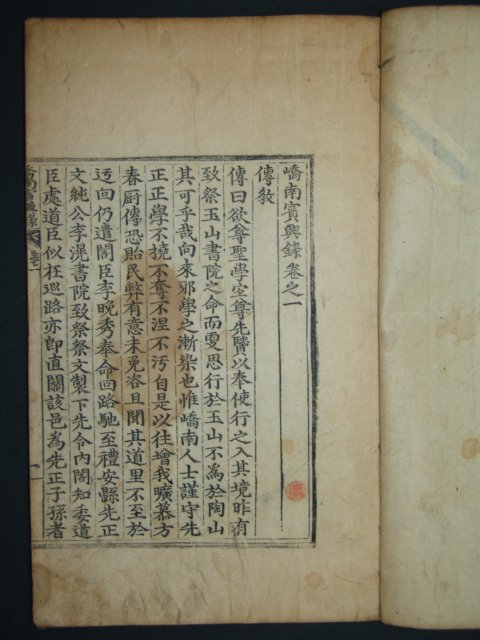 嶠南賓興錄卷之一
傳敎
傳曰欲尊聖學宜尊先賢以奉使行之入其境昨有
致祭玉山書院之命而更思行於玉山不爲於陶山
其可乎哉向來邪學之漸染也惟嶠南人士謹守先
正正學不撓不奪不涅不汚自是以往增我曠慕方
春厨傳恐貽民弊有意未免咨且聞其道里不至於
迂向仍遣閣臣李晚秀奉命回路馳至禮安縣先正
文純公李滉書院致祭祭文製下先令內閣知委道
臣處道臣似在巡路亦卽直關該邑爲先正子孫者
卷一
一